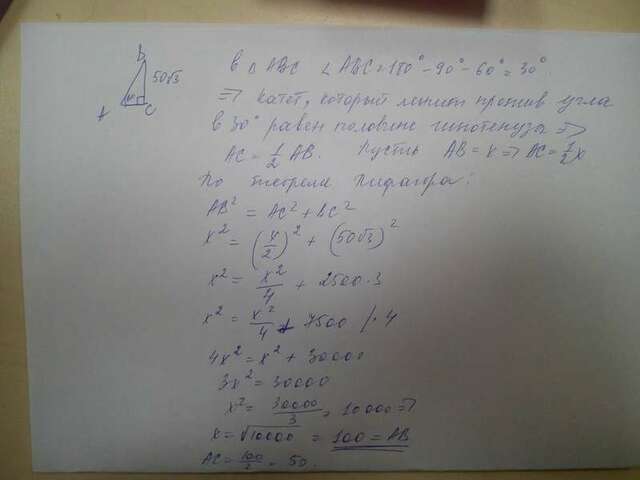 B
50√3
A
60°
C
в △ ABC ∠ ABC = 180° - 90° - 60° = 30°.
=> катет, который лежит против угла
в 30° равен половине гипотенузы =>
AC = 1/2 AB. Пусть AB = x => AC = 1/2 x
По теореме Пифагора:
AB² = AC² + BC²
x² = (x/2)² + (50√3)²
x² = x²/4 + 2500·3
x² = x²/4 + 7500 /· 4
4x² = x² + 30000
3x² = 30000
x² = 30000/3 = 10000 =>
x = √10000 = 100 = AB
AC = 100/2 = 50.